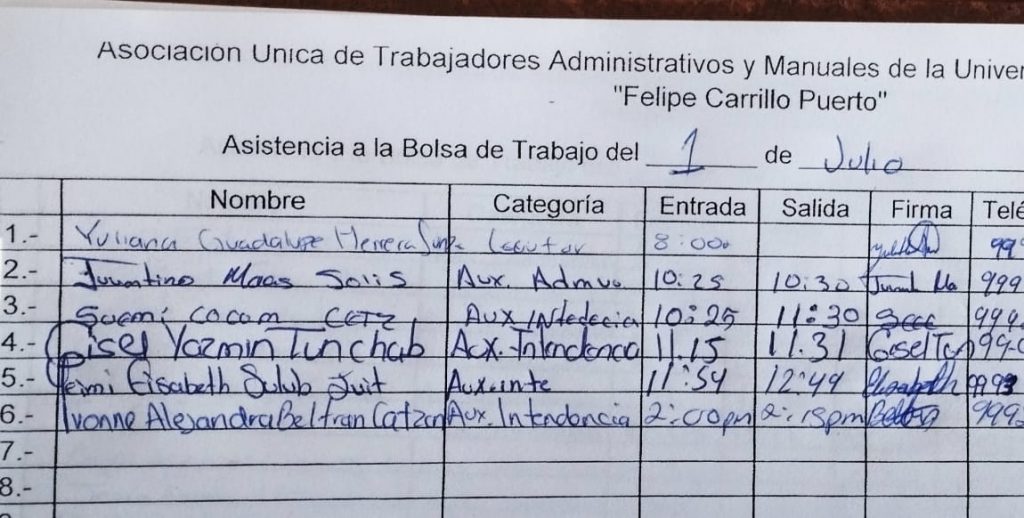 Asociación Unica de Trabajadores Administrativos y Manuales de la Univer
"Felipe Carrillo Puerto"
Asistencia a la Bolsa de Trabajo del 1 de Julio
Nombre Categoría Entrada Salida Firma Telé
1.- Yuliana Guadalupe Herrera Locutor 8:00 99
2.- Juventino Maas Solis Aux. Admvo 10:25 10:30 999
3.- Suemi Cocom Cetz Aux Intedecia 10:25 11:30 999
4.- Gisel Yazmin Tun chab Aux. Intendenca 11.15 11.31 Gisel Tun 99-
5.- Eisabeth Sulub 11:54 12:49 Elisabeth 999
6.- Ivonne Alejandra Beltran Catzan Aux. Intendencia 2:00pm 2:15pm 999
7.-
8.-